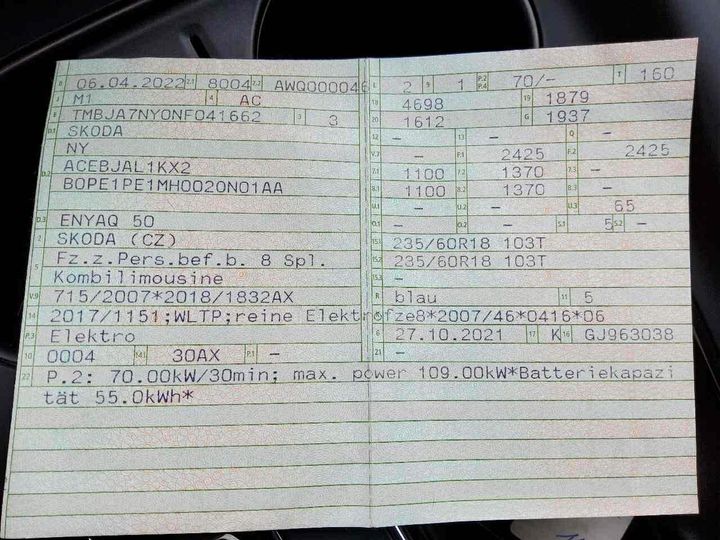 B 06.04.2022 2.1 8004 2.2 AWQ000046
J M1 4 AC
E TMBJA7NY0NF041662 3 3
D.1 SKODA
NY
D.2 ACEBJAL1KX2
B0PE1PE1MH0020N01AA
D.3 ENYAQ 50
2 SKODA (CZ)
5 Fz.z.Pers.bef.b. 8 Spl.
Kombilimousine
V.9 715/2007*2018/1832AX
14 2017/1151;WLTP;reine Elektrofze8*2007/46*0416*06
P.3 Elektro
10 0004 14.1 30AX P.1 -
22 P.2: 70.00kW/30min; max. power 109.00kW*Batteriekapazi
tät 55.0kWh*
L 2 9 1 P.2 P.4 70/- T 160
18 4698 19 1879
20 1612 G 1937
12 - 13 - Q -
V.7 - F.1 2425 F.2 2425
7.1 1100 7.2 1370 7.3 -
8.1 1100 8.2 1370 8.3 -
U.1 - U.2 - U.3 65
O.1 - O.2 - S.1 5 S.2 -
15.1 235/60R18 103T
15.2 235/60R18 103T
15.3 -
R blau 11 5
6 27.10.2021 17 K 16 GJ963038
21 -